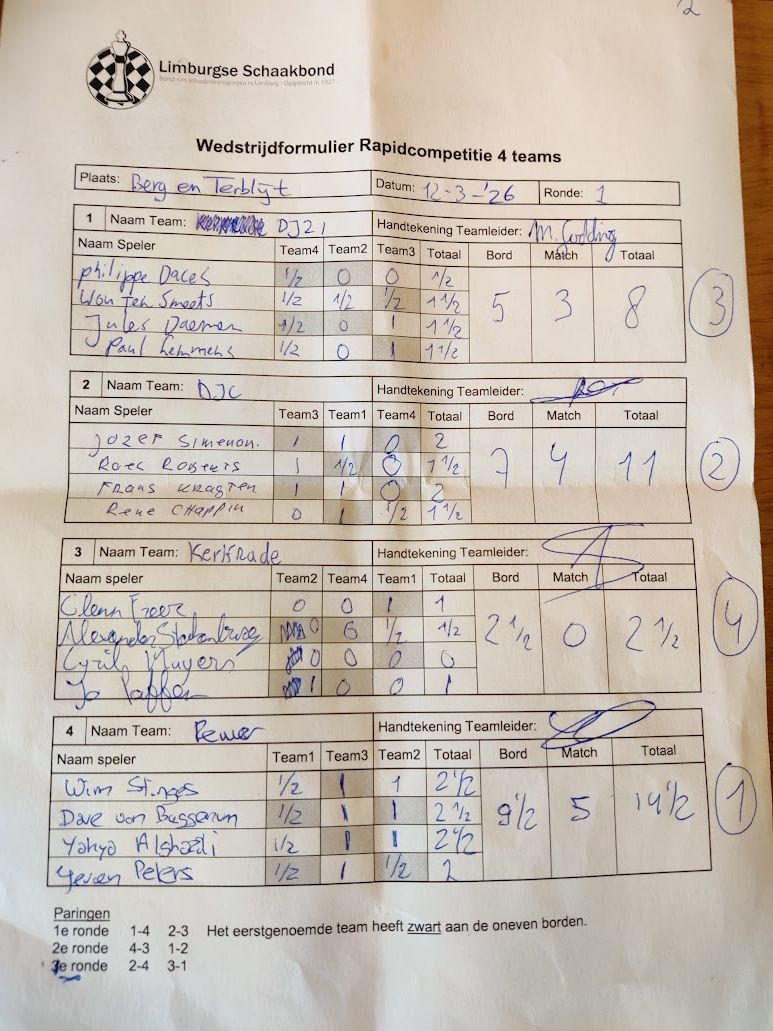 2
Limburgse Schaakbond
Bond van schaakverenigingen in Limburg - Opgericht in 1927
Wedstrijdformulier Rapidcompetitie 4 teams
Plaats: Berg en Terblijt Datum: 12-3-'26 Ronde: 1
1 Naam Team: DJ21 Handtekening Teamleider: M. Godding
Naam Speler Team4 Team2 Team3 Totaal Bord Match Totaal
philippe Daces 1/2 0 0 1/2
Won Jen Smeets 1/2 1/2 1/2 1 1/2 5 3 8 3
Jules Daemen 1/2 0 1 1 1/2
Paul Lemmens 1/2 0 1 1 1/2
2 Naam Team: DJC Handtekening Teamleider:
Naam Speler Team3 Team1 Team4 Totaal Bord Match Totaal
Jozef Simenon. 1 1 0 2
Roel Roberts 1 1/2 0 1 1/2 7 4 11 2
Frans Kragten 1 1 0 2
Rene Chappin 0 1 1/2 1 1/2
3 Naam Team: Kerkrade Handtekening Teamleider:
Naam speler Team2 Team4 Team1 Totaal Bord Match Totaal
Glenn 0 0 1 1
Alexander 0 0 1/2 1/2 2 1/2 0 2 1/2 4
Cyril Muyers 0 0 0 0
Jo Paffen 1 0 0 1
4 Naam Team: Handtekening Teamleider:
Naam speler Team1 Team3 Team2 Totaal Bord Match Totaal
Wim Stinges 1/2 1 1 2 1/2
Dave van Buggenum 1/2 1 1 2 1/2 9 1/2 5 14 1/2 1
Yahya 1/2 1 1 2 1/2
Yeroen Peters 1/2 1 1/2 2
Paringen
1e ronde 1-4 2-3 Het eerstgenoemde team heeft zwart aan de oneven borden.
2e ronde 4-3 1-2
3e ronde 2-4 3-1